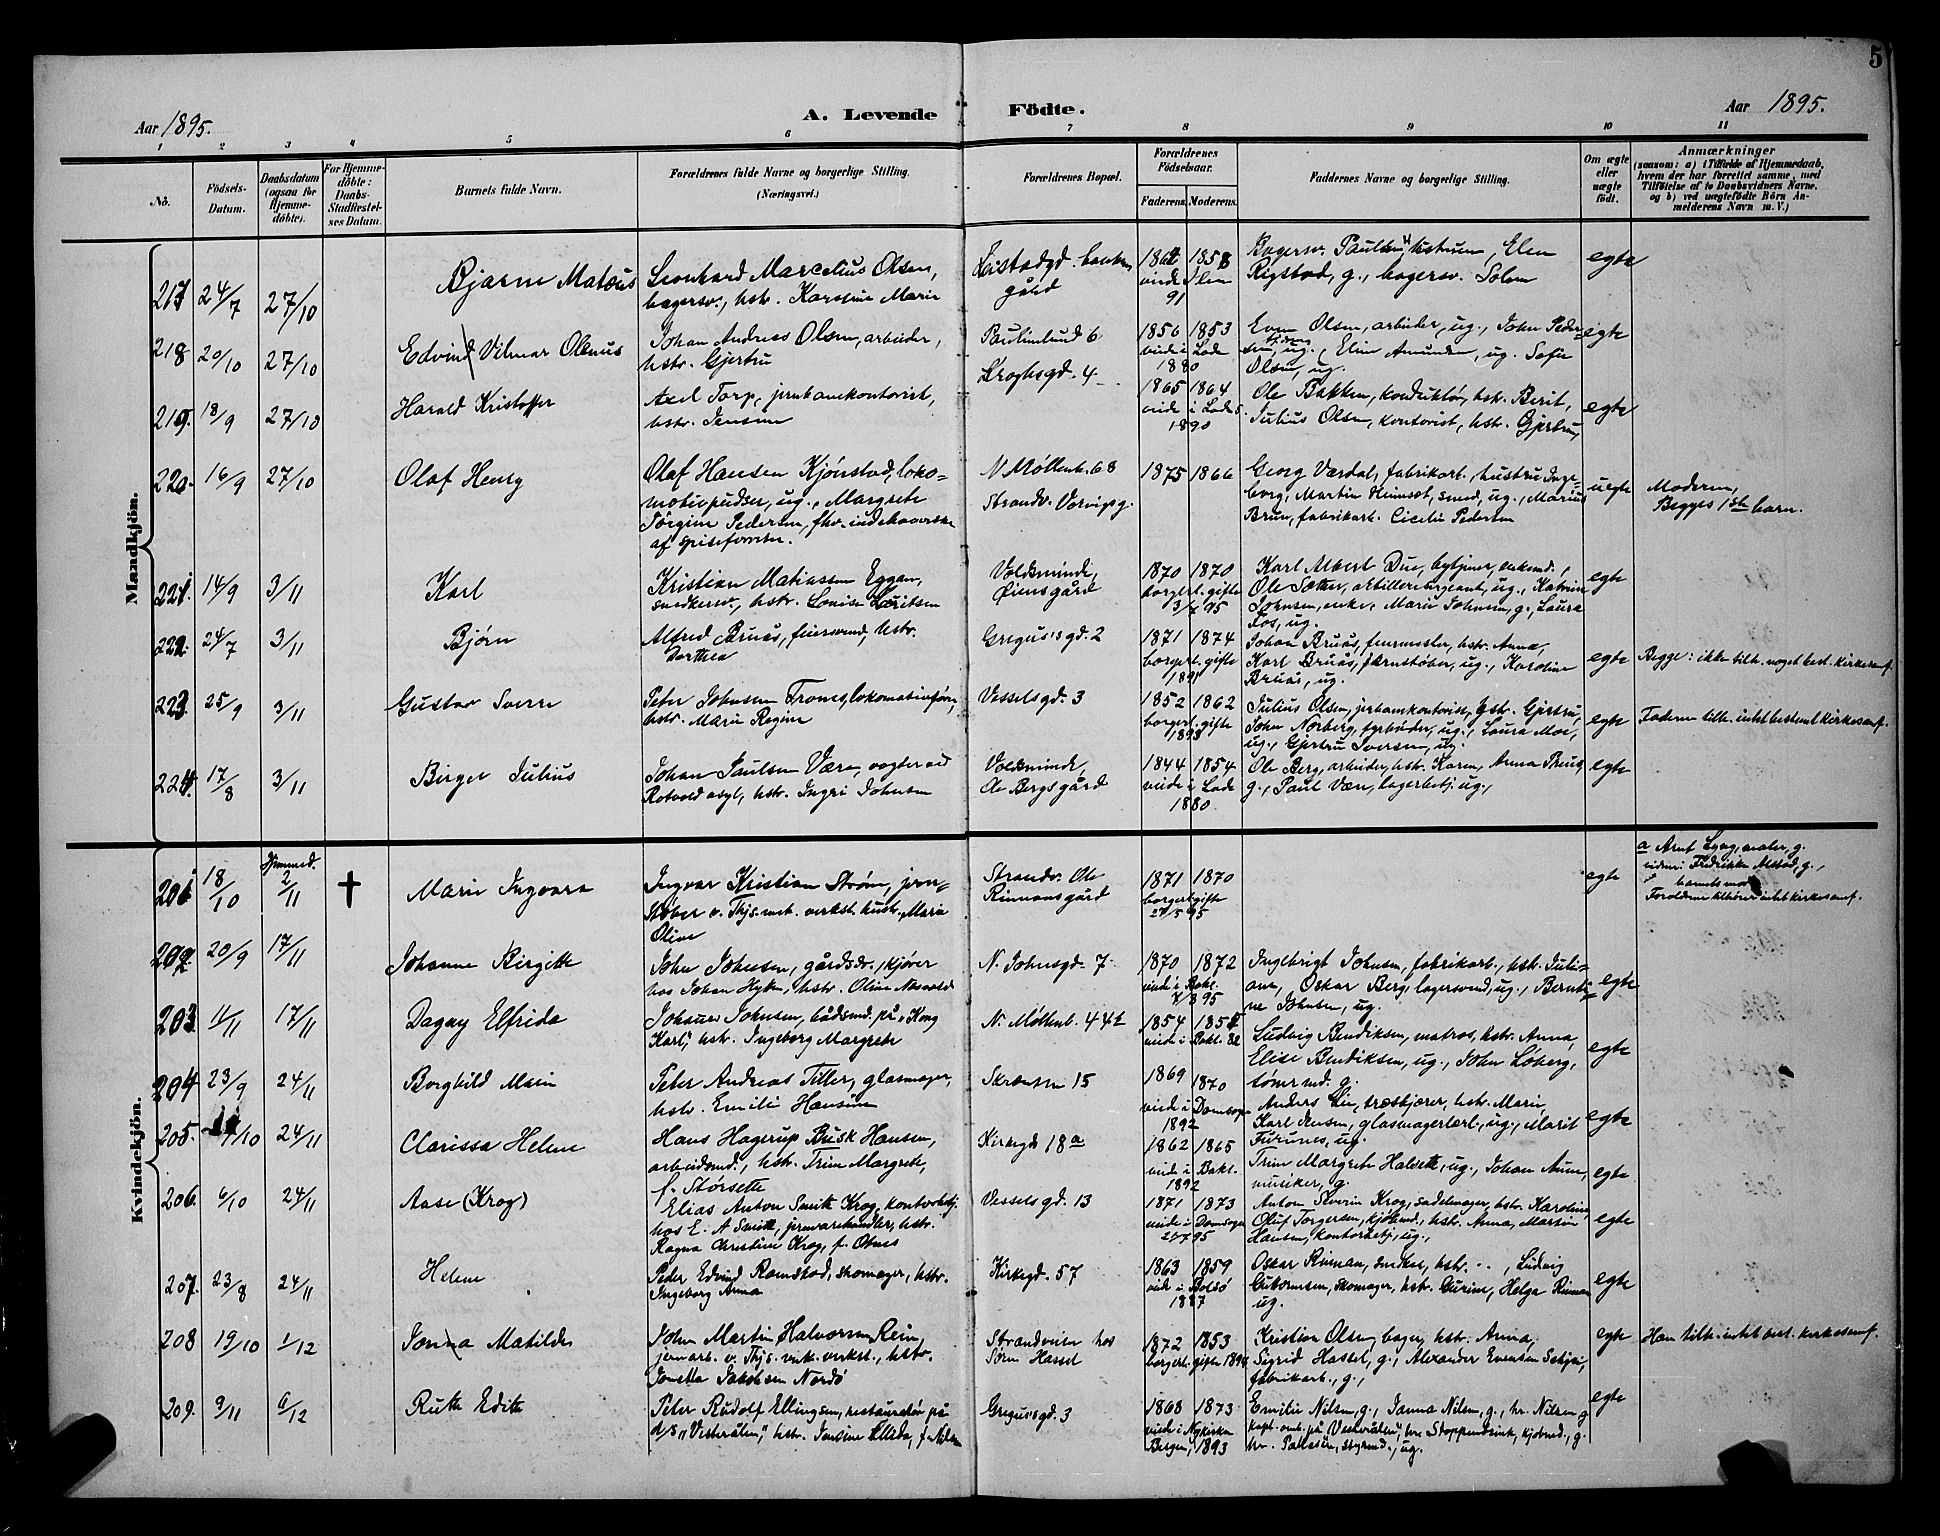 5
Aar 1895.
A. Levende
Födte.
Aar 1895.
1 2 3 4 5 6 7 8 9 10 11
No.
Födsels-
Datum.
Daabsdatum
(ogsaa for
Hjemme-
döbte).
For Hjemme-
döbte:
Daabs-
Stadfæstel-
ses Datum.
Barnets fulde Navn.
Forældrenes fulde Navne og borgerlige Stilling.
(Næringsvei.)
Forældrenes Bopæl.
Forældrenes
Födselsaar.
Faderens.
Moderens.
Faddernes Navne og borgerlige Stilling.
Om ægte
eller
uægte
födt.
Anmærkninger
(saasom: a) i Tilfælde af Hjemmedaab,
hvem der har forrettet samme, med
Tilföielse af to Daabsvidners Navne,
og b) ved uægtefödte Börn An-
melderens Navn m. V.)
Mandkjön.
217 24/7 27/10
Bjarne Matæus
Leonhard Marcelius Olsen,
bagersv., hstr. Karstine Marie
gård
1858
91
Bagersv. Paulsen, hustruen, Elen
Rigstad, g., bagersv. Solem
egte
218 20/10 27/10
Edvind Vilmar Olenus
Johan Andreas Olsen, arbeider,
hstr. Gjertru
Paulinelund 6
1856 1853
viede i Lade
1880
Even Olsen, arbeider, ug., John Peder-
sen, ug., Elen Amundsen, ug. Sofie
Olsen, ug.
egte
219. 18/9 27/10
Harald Kristoffer
Axel Torp, jernbanekontorist,
hstr. Jensine
Kroghsgd. 4
1865 1864
viede i Lade
1890
Ole Bakken, konduktør, hstr. Berit,
Julius Olsen, kontorist, hstr. Gjertru,
egte
220. 16/9 27/10
Olaf Henry
Olaf Hansen Kjønstad, loko-
motivpudser, ug., Margrete
Jørgine Pedersen, fhv. indehaverske
af spiseforretn.
N. Møllenb. 68
Strandv. Vorvipsg.
1875 1866
Georg Værdal, fabrikarb., hustru Inge-
borg, Martin Heimset, smed, ug., Marius
Brun, fabrikarb. Cecilie Pedersen
uegte
Moderen,
Begges 1ste barn.
221. 14/9 3/11
Karl
Kristian Matiassen Eggan,
snedkersv., hstr. Lovise Lauritsen
Voldsminde,
Øiensgård
1870 1870
borgerl. gifte
95
Karl Albert Due, bytjener, enkemd.,
Ole Sæther, artillerisergeant, ug., Katrine
Johnsen, enke, Marie Johnsen, g., Laura
Fos, ug.
egte
222. 24/7 3/11
Bjørn
Alfred Bruås, feiersvend, hstr.
Dorthea
Gregus's gd. 2
1871 1874
borgerl. gifte
1891
Johan Bruås, feiermester, hstr. Anna,
Karl Bruås, jernstøber, ug., Karoline
Bruås, ug.
egte
Begge: ikke tilh. noget best. kirkesamf.
223. 25/9 3/11
Gustav Sverre
Peter Johnsen Trones, lokomotivfører,
hstr. Marie Regine
Vesselsgd. 3
1852 1862
borgerl. gifte
1893
Julius Olsen, jernbanekontorist, hstr. Gjertru,
John Norberg, fyrbøder, ug., Laura Moe,
ug., Gjertru Iversen, ug.
egte
Faderen tilh. intet bestemt kirkesamf.
224. 17/8 3/11
Birger Julius
Johan Paulsen Være, vogter ved
Rotvold asyl, hstr. Ingri Johnsen
Voldsminde,
Ole Bergsgård
1844 1854
viede i Lade
1880.
Ole Berg, arbeider, hstr. Karen, Anna Bruus,
g., Paul Være, lagerbetj. ug.,
egte
Kvindekjön.
201 18/10
Hjemmed.
2/11
†
Marie Ingvara
Ingvar Kristian Strøm, jern-
støber v. Thjs. mek. verkst. hustr. Marie
Oline
Strandv. Ole
Rinnansgård
1871 1870
borgerl. gifte
27/5 95
egte
a Arnt Lyng, maler, g.
vidner: Fredrikke Alstad, g.,
barnets mor
Foreldrene tilhører intet kirkesamf.
202. 20/9 17/11
Johanne Birgitte
John Johnsen, gårdsdr., kjører
hos Johan Hyken, hstr. Oline
N. Johnsgd. 7
1870 1872
viede i Bakl.
95
Ingebrigt Johnsen, fabrikarb., hstr. Juli-
ane, Oskar Berg, lagersvend, ug., Bernti-
ne Johnsen, ug.
egte
203. 11/11 17/11
Dagny Elfrida
Johannes Johnsen, bådsmd. på "Kong
Karl", hstr. Ingeborg Margrete
N. Møllenb. 44b
1854
viede i Bakl. 82
Ludvig Bendiksen, matros, hstr. Anna,
Elise Bendiksen, ug., John Løberg,
tømrmd. g.
egte
204 23/9 24/11
Borghild Marie
Peter Andreas Tiller, glasmager,
hstr. Emilie Hansine
Skrænten 15
1869 1870
viede i Domsogn
1892
Anders Lie, træskjærer, hstr. Marie,
Karl Jensen, glasmagerlærl., ug., Marit
Furunes, ug.
egte
205. 10 24/11
Clarissa Helene
Hans Hagerup Busk Hansen,
arbeidsmd., hstr. Trine Margrete,
f. Størsette
Kirkegd 18a
1862 1865
viede i Bakl.
1892
Trine Margrete Halsette, ug., Johan Aune,
musiker, g.
egte
206. 6/10 24/11
Aase (Krog)
Elias Anton Smith Krog, kontorbetj.
hos E. A Smith, jernvarehandler, hstr.
Ragna Christine Krog, f. Otnes
Vesselsgd. 13
1871 1873
viede i Domsogn
95
Anton Severin Krog, sadelmager, hstr. Karoline,
Oluf Torgersen, kjøbmd., hstr. Anna, Martin
Hansen, kontorbetj., ug.,
egte
207. 23/8 24/11
Helene
Peder Edvind Ramstad, skomager, hstr.
Ingeborg Anna
Kirkegd. 57
1863 1859
viede i Bolsø
1887
Oskar Rinnan, snedker, hstr. - - , Ludvig
Gutormsen, skomager, hstr. Gurine, Helga Rinnan
ug.
egte
208 19/10 1/12
Jonna Matilde
John Martin Halvorsen Rein,
jernarb. v. Thjs. mek. verkst., hstr.
Jonetta Jakobsen Nordø
Strandveien hos
Søren Hassel
1872 1853
borgerl. gifte 1894
Kristian Olsen, bager, hstr. Anna,
Sigrid Hassel, g., Alexander Evensen
fabrikarb., g.,
egte
Han tilh. intet best. kirkesamf.
209. 9/11 6/12
Ruth Edith
Peter Rudolf Ellingsen, restauratør på
d/s "Vesterålen", hstr. Jensine Elida, f. Nilsen
Gregus'sgd. 3
1868 1873
viede i Nykirken
Bergen, 1893
Emilie Nilsen, g., Janna Nilsen, g., hr. Nilsen g.
på Vesterålen, hr. Stoppenbrink, kjøbmd., g.
hr. Pallesen, styrmd., ug.
egte